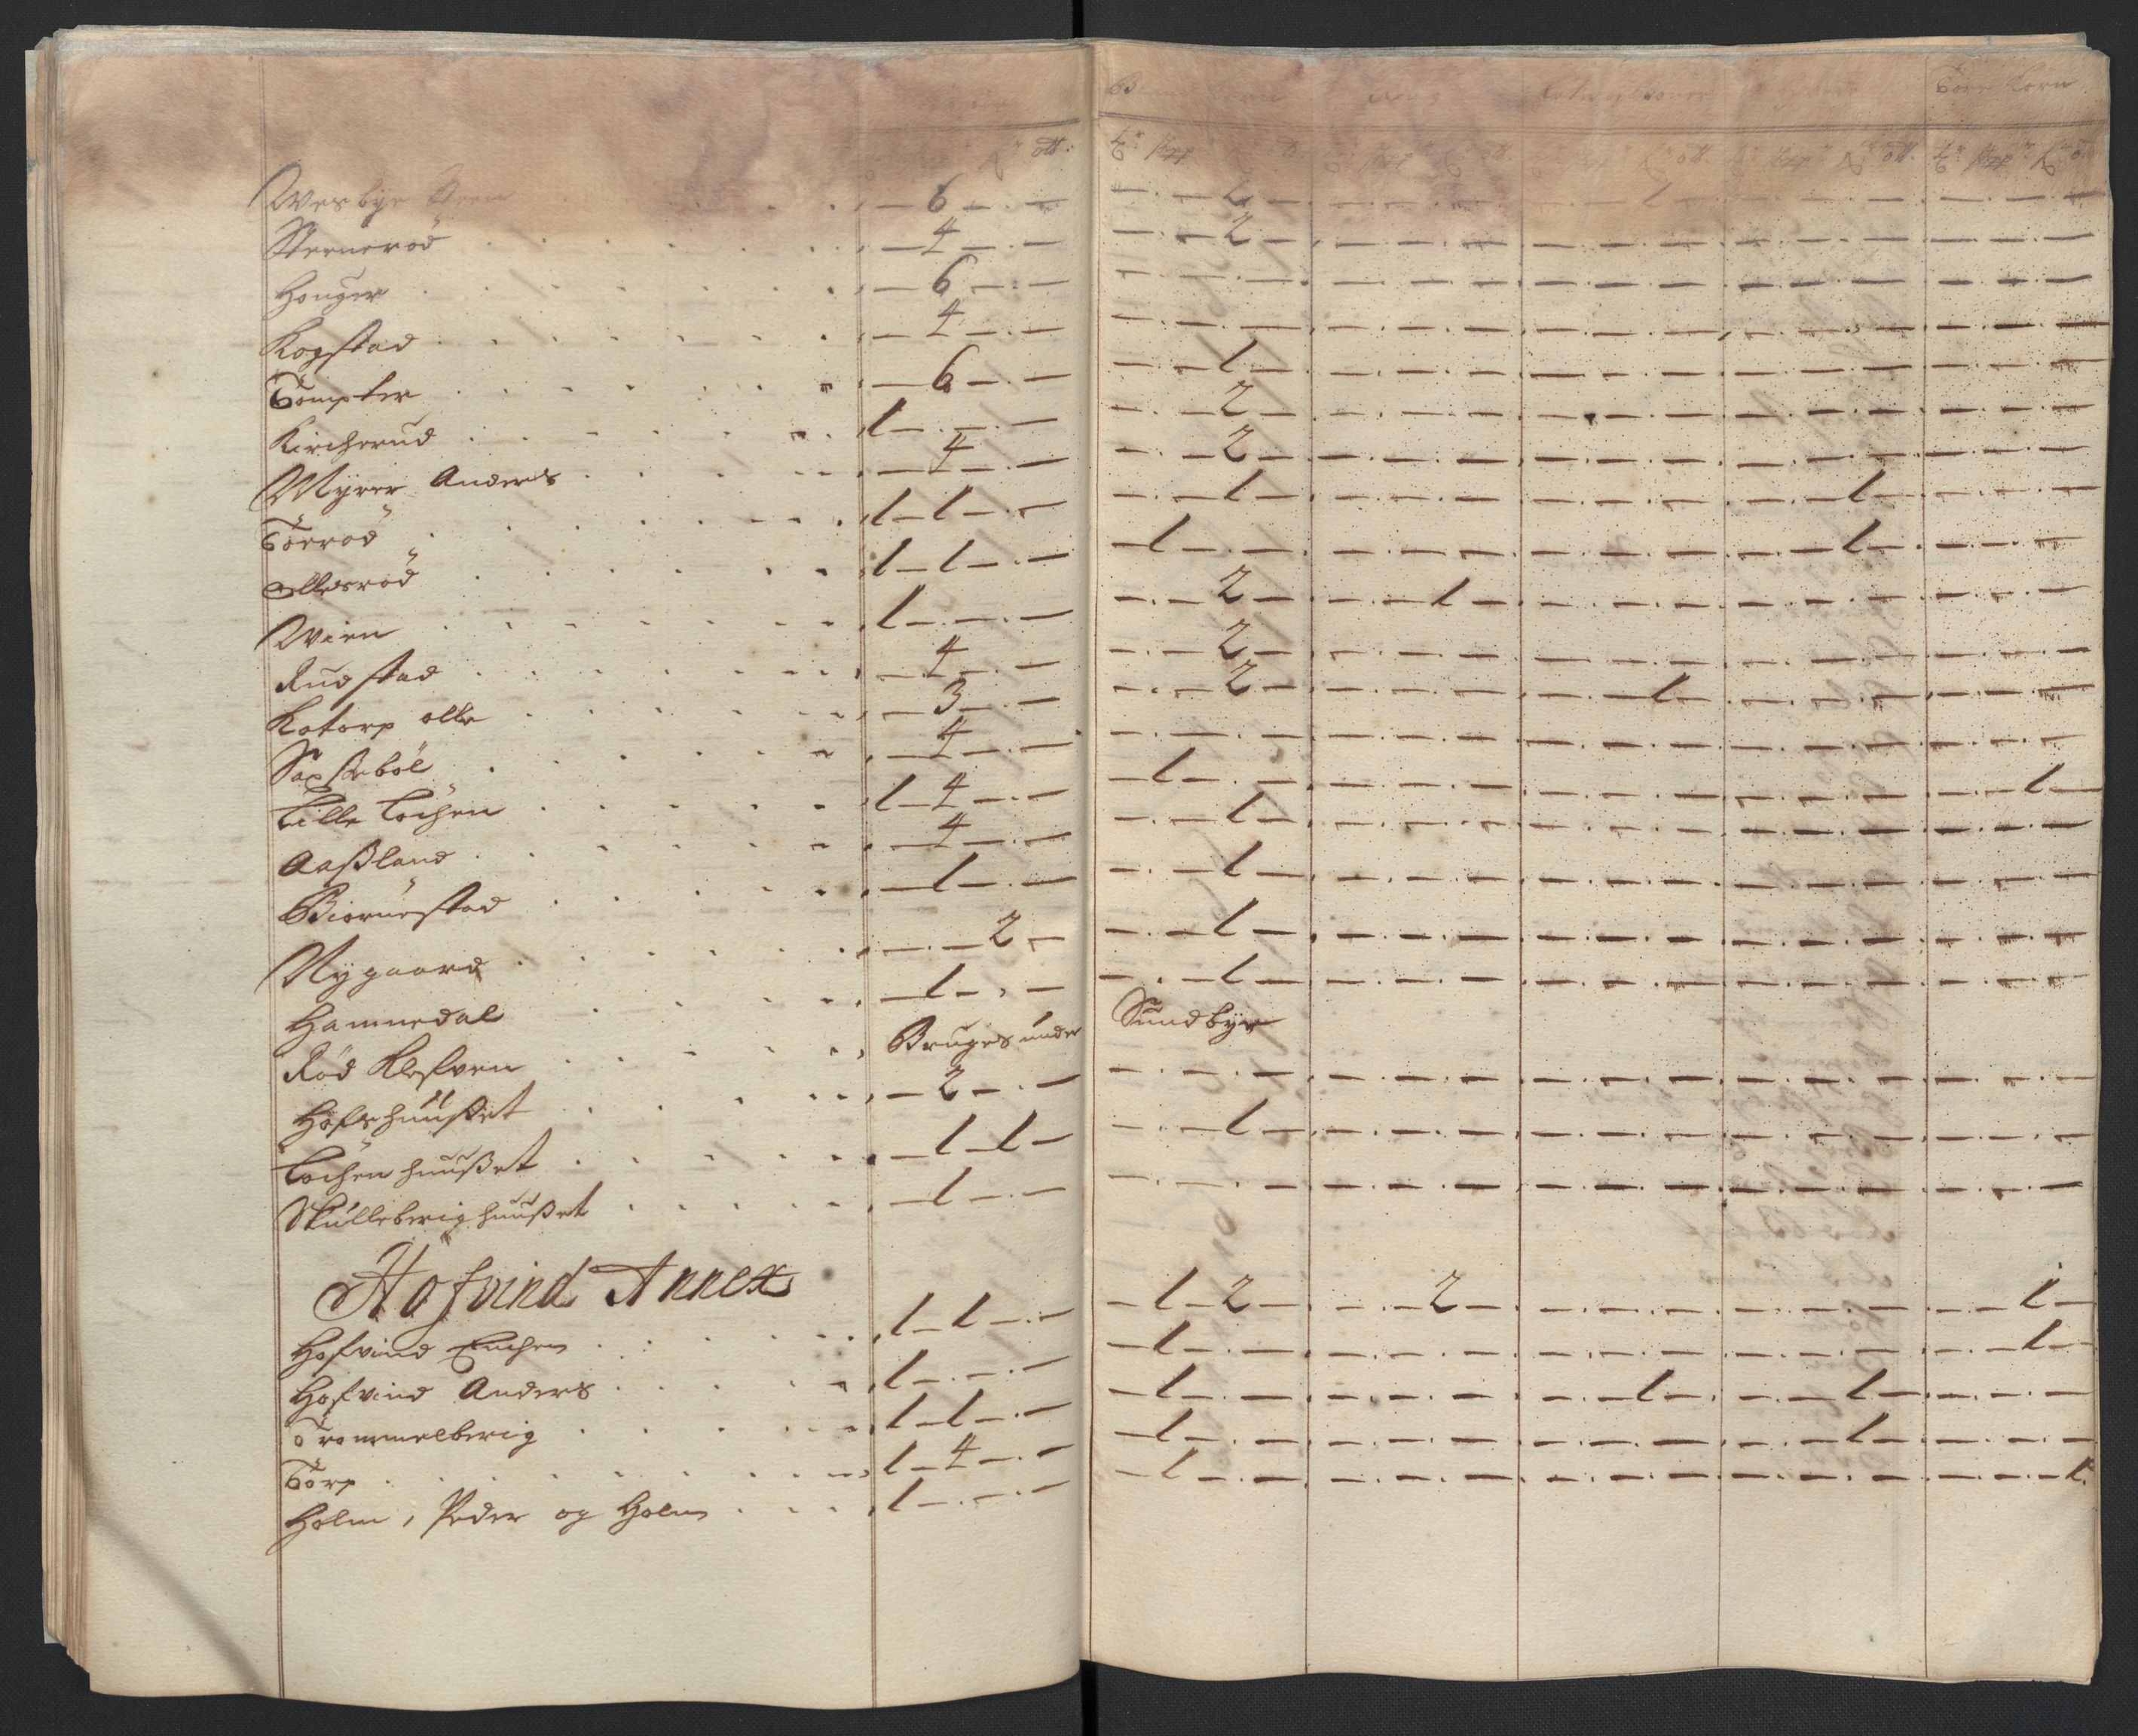 Tørre Korn
Wesbye 6 2
Sternerød 4 2
Houger 6
Kogstad 4
Tompter 6 1
Kircherud 1 2
Myrer Anders 4 2
Tørrød 1 1 1 1
Ellesrød 1 1 1 1
Wien 1 2 1
Rudstad 4 2
Kotorp olle 3 2 1
Saxsebøl 4
Lille Løchen 1 4 1 1
Aaßland 4 1
Biørnestad 1 1
Nygaard 2 1
Hamnedal 1 1
Rød Klefven Bruges under Sundbye
Høfsehuußet 2
Løchen huußet 1 1 1
Skulleberighuußet 1
Hofvind Annex
Hofvind Enchen 1 1 1 2 2 1
Hofvind Anders 1 1 1
Trommelberig 1 1 1 1 1
Torp 1 4 1 1
Holm, Peder og Holm 1 1 1